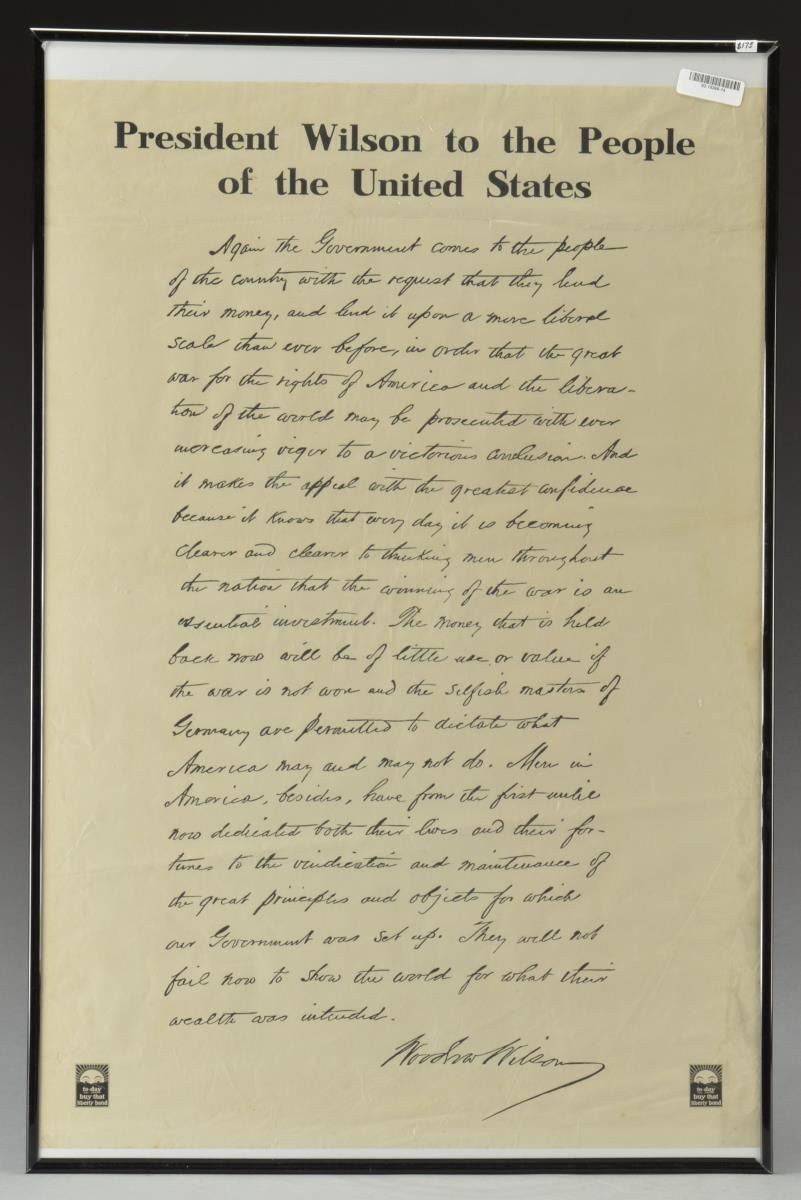 $175
President Wilson to the People
of the United States
Again the Government comes to the people
of the country with the request that they lend
their money, and lend it upon a more liberal
scale than ever before, in order that the great
war for the rights of America and the libera-
tion of the world may be prosecuted with ever
increasing vigor to a victorious conclusion. And
it makes the appeal with the greatest confidence
because it knows that every day it is becoming
clearer and clearer to thinking men throughout
the nation that the winning of the war is an
essential investment. The money that is held
back now will be of little use or value if
the war is not won and the selfish masters of
Germany are permitted to dictate what
America may and may not do. Men in
America, besides, have from the first until
now dedicated both their lives and their for-
tunes to the vindication and maintenance of
the great principles and objects for which
our Government was set up. They will not
fail now to show the world for what their
wealth was intended.
Woodrow Wilson
to-day
buy that
liberty bond
to-day
buy that
liberty bond